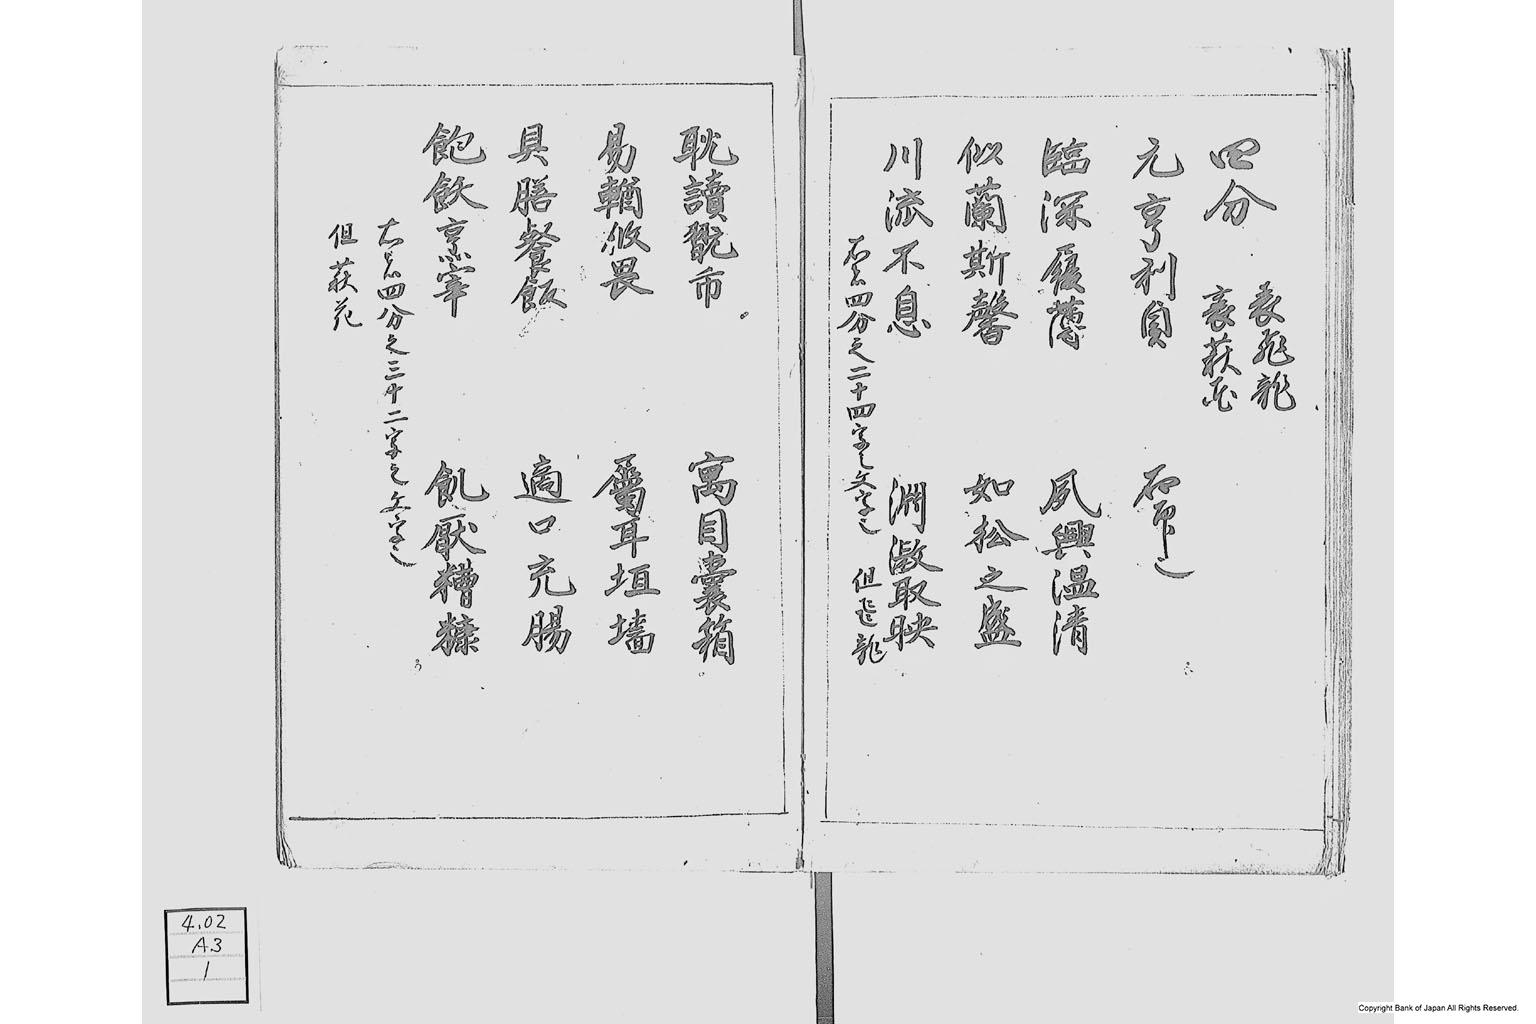 四分
表飛龍
裏萩花
元亨利貞
臨深履薄
夙興温凊
似蘭斯馨
如松之盛
川流不息
淵澂取暎
四分之二十四字之文字也
但飛龍
耽讀翫市
寓目嚢箱
易輶攸畏
属耳垣墻
具膳飡飯
適口充腸
飽飫烹宰
飢厭糟糠
四分之三十二字之文字也
但萩花
4.02
A3
1
Copyright Bank of Japan All Rights Reserved.